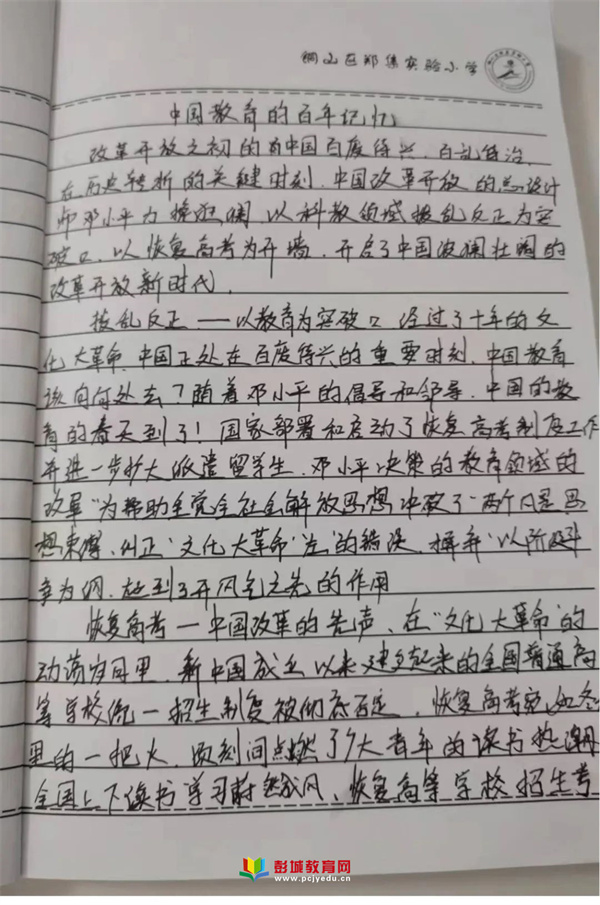 铜山区郑集实验小学
中国教育的百年记忆
改革开放之初的中国百度待兴、百乱待治,
在历史转折的关键时刻,中国改革开放的总设计
师邓小平力挽狂澜,以科教领域拨乱反正为突
破口,以恢复高考为开端,开启了中国波澜壮阔的
改革开放新时代.
拨乱反正——以教育为突破口 经过了十年的文
化大革命,中国正处在百度待兴的重要时刻,中国教育
该向何处去?随着邓小平的倡导和领导,中国的教
育的春天到了!国家部署和启动了恢复高考制度工作
并进一步扩大派遣留学生,邓小平决策的教育领域的
改革"为帮助全党全社会解放思想冲破了"两个凡是思
想束缚,纠正"文化大革命"左"的错误,摒弃"以阶级斗
争为纲,起到了开风气之先的作用
恢复高考一中国改革的先声、在"文化大革命"的
动荡岁月里,新中国成立以来建立起来的全国普通高
等学校统一招生制度被彻底否定,恢复高考宛如冬
里的一把火,顷刻间点燃了广大青年的读书热潮
全国上下读书学习蔚然成风、恢复高等学校招生考
彭城教育网
www.pcjyedu.cn